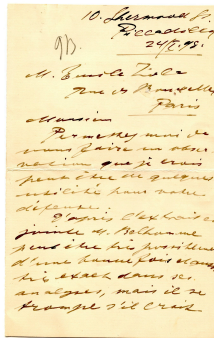 10. Sherwood St.
Piccadilly
24/2.98.
M. Emile Zola
Rue de Bruxelles
Paris
Monsieur
Permettez moi de
vous faire une obser
vation que je crois
peut être de quelque
utilité pour votre
défense.
D'après l'extrait ci
jointe M. Belhomme
peut être très
d'une bonne fois et
très exact dans ses
analyses, mais il se
trompe s'il croit